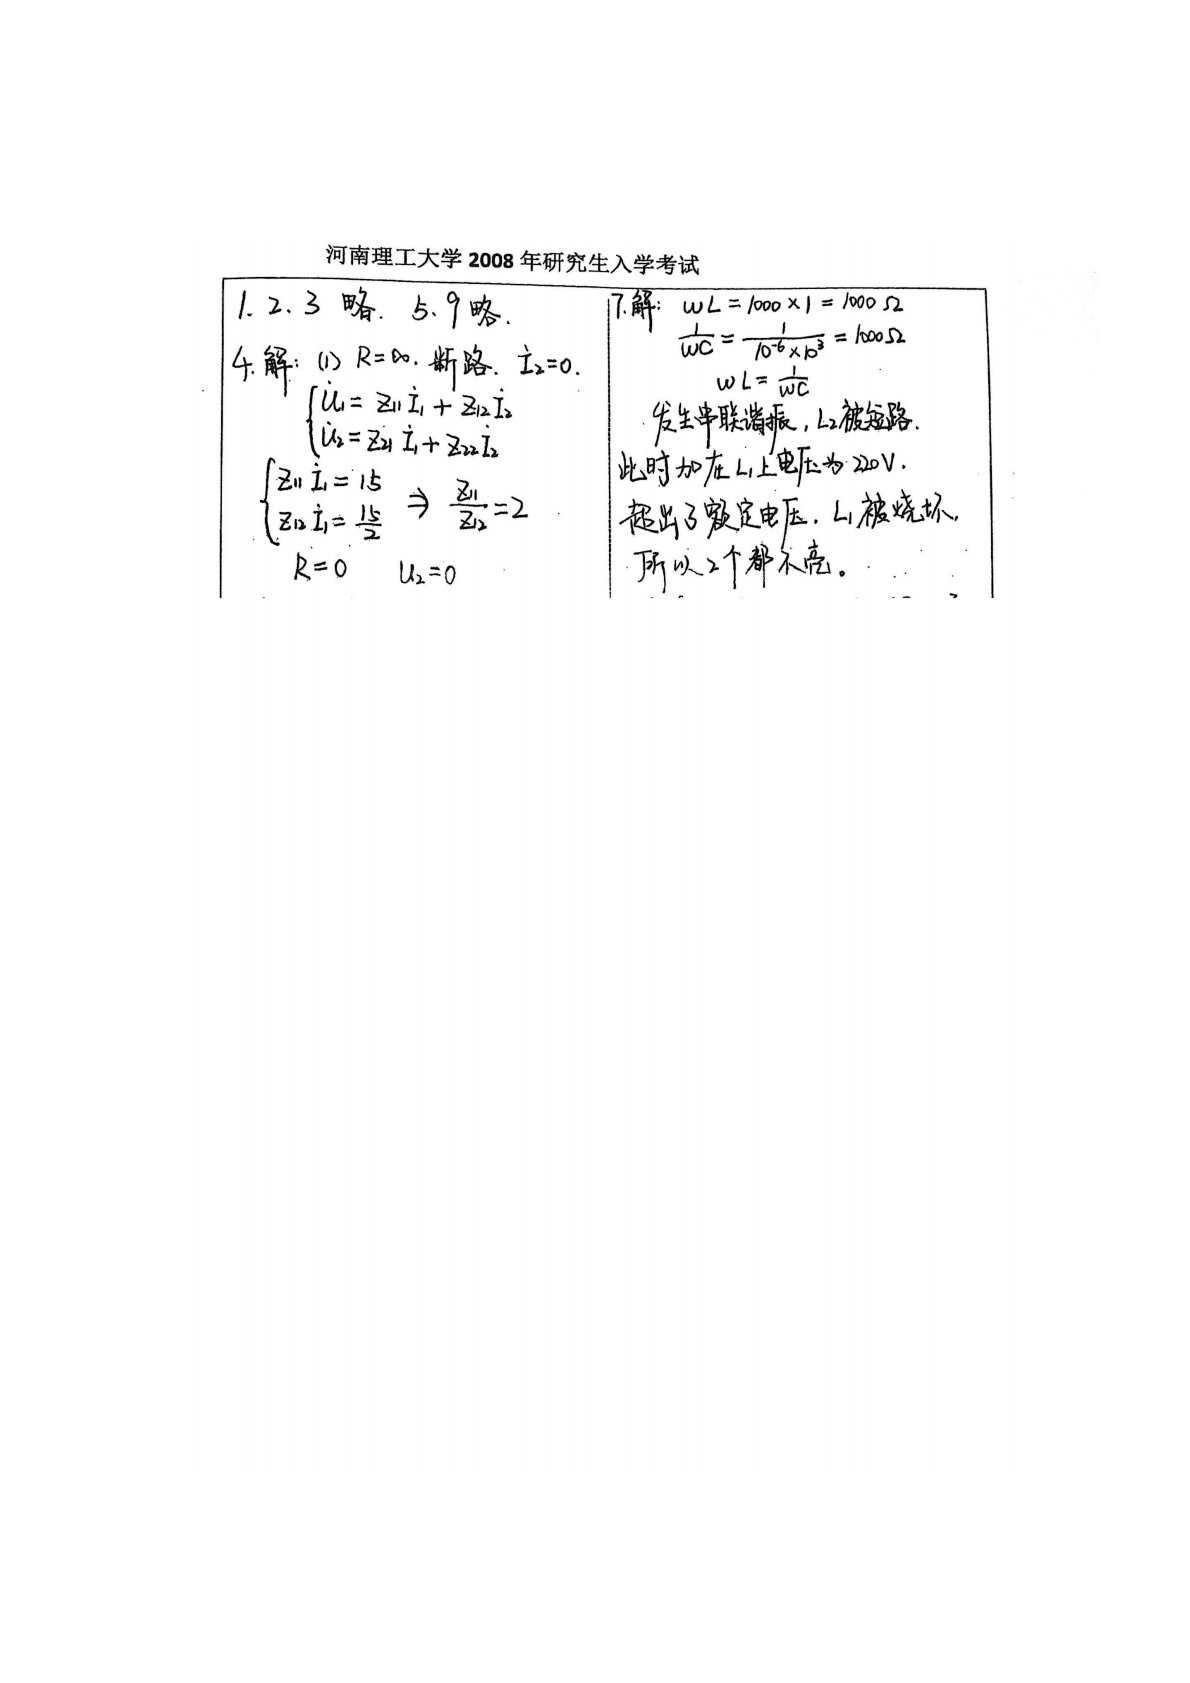 河南理工大学 2008 年研究生入学考试
1. 2. 3 略. 5. 9 略.
4. 解: (1) R=∞. 断路. İ₂=0.
{ U̇₁ = Z₁₁ İ₁ + Z₁₂ İ₂
U̇₂ = Z₂₁ İ₁ + Z₂₂ İ₂
{ Z₁₁ İ₁ = 15
Z₁₂ İ₁ = 15/2 ⇒ Z₁₁/Z₁₂ = 2
R=0 U₂=0
7. 解: ωL = 1000 × 1 = 1000 Ω
1/ωC = 1/(10⁻⁶×10³) = 1000Ω
ωL = 1/ωC
发生串联谐振, L₂被短路.
此时加在L₁上电压为220V.
超出了额定电压. L₁被烧坏.
所以2个都不亮。